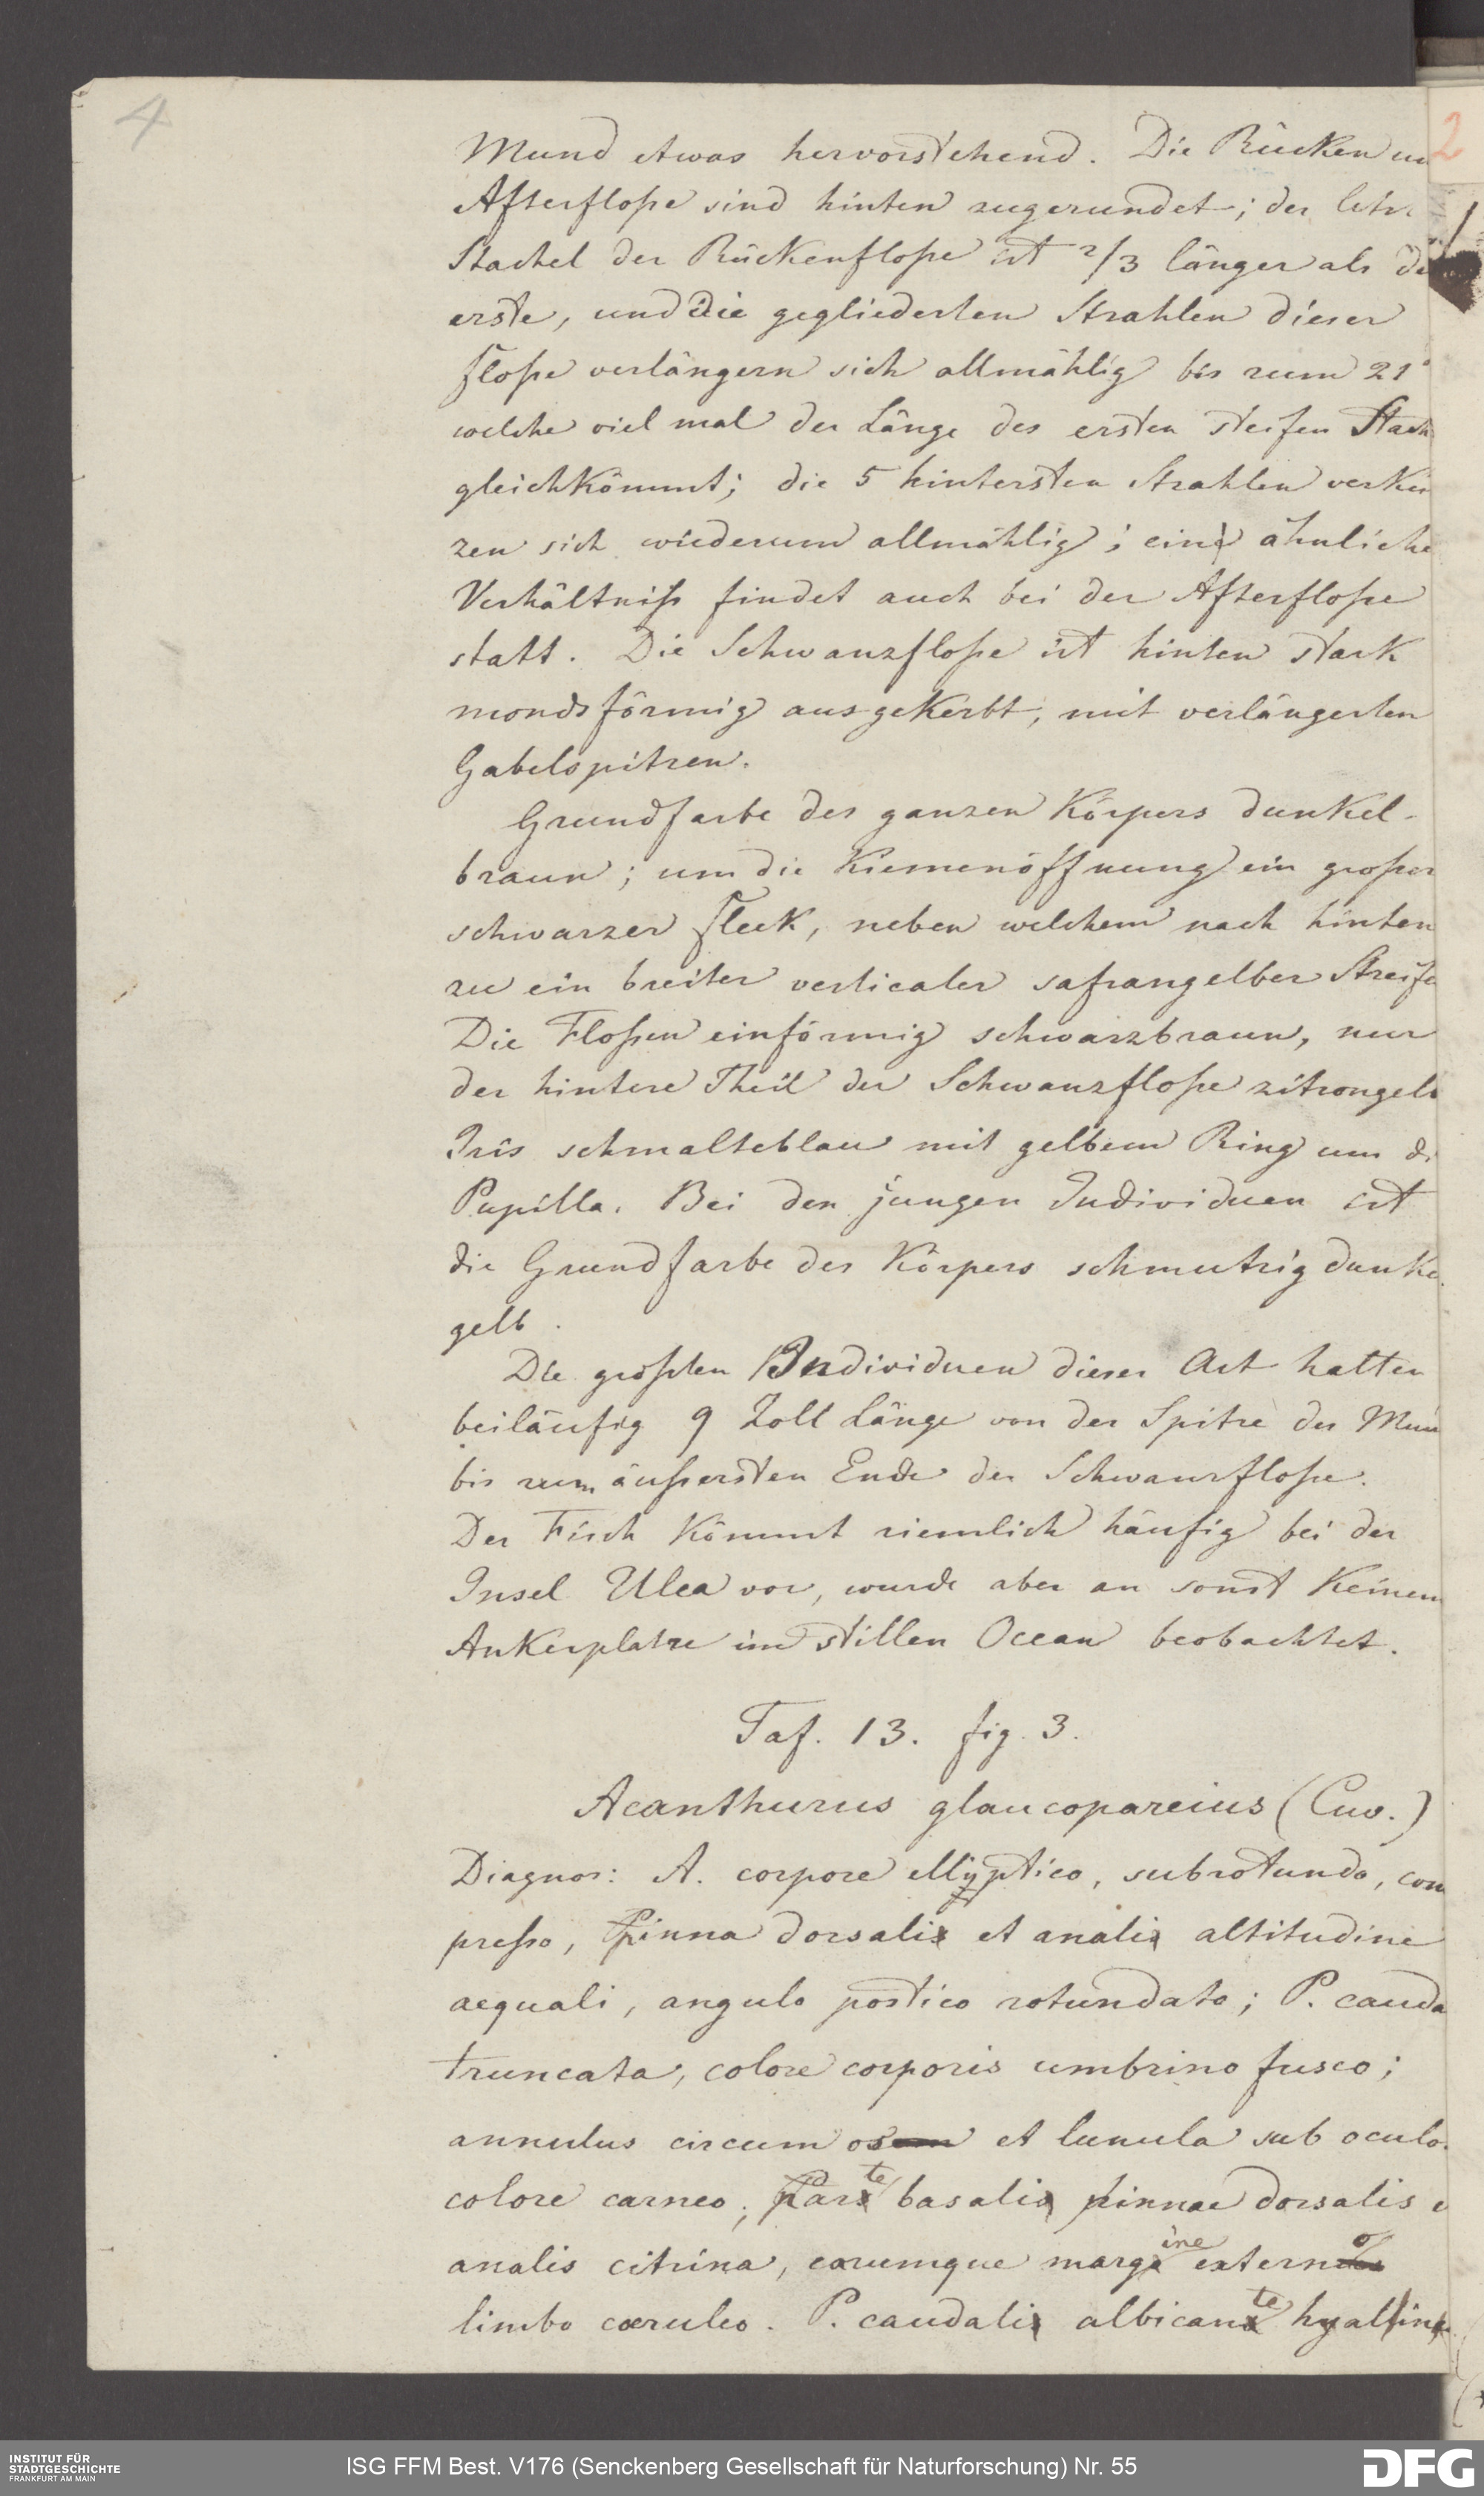 4
2
Mund etwas hervorstehend. Die Rücken un
Afterfloße sind hinten zugerundet; der letz
Stachel der Rückenfloße ist 2/3 länger als de
erste, und die gegliederten Strahlen dieser
Floße verlängern sich allmählig bis zum 21
welche viel mal der Länge des ersten steifen Stach
gleichkömmt; die 5 hintersten Strahlen verkür
zen sich wiederum allmählig; ein ähnliche
Verhältniß findet auch bei der Afterfloße
statt. Die Schwanzfloße ist hinten stark
mondsförmig ausgekerbt, mit verlängerten
Gabelspitzen.
Grundfarbe des ganzen Körpers dunkel-
braun; um die Kiemenöffnung ein großer
schwarzer Fleck, neben welchem nach hinten
zu ein breiter verticaler safrangelber Streife
Die Floßen einförmig schwarzbraun, nur
der hintere Theil der Schwanzfloße zitrongelb
Iris schmalteblau mit gelbem Ring um di
Pupilla. Bei den jungen Individuen ist
die Grundfarbe des Körpers schmutzig dunke
gelb.
Die größten Individuen dieser Art hatten
beiläufig 9 Zoll Länge von der Spitze des Mun
bis zum äußersten Ende der Schwanzfloße.
Der Fisch kömmt ziemlich häufig bei der
Insel Ulea vor, wurde aber an sonst keinem
Ankerplatze im stillen Ocean beobachtet.
Taf. 13. fig. 3.
Acanthurus glaucopareius (Cuv.)
Diagnos: A. corpore ellyptico, subrotundo, com
preßo, Pinna dorsali et anali altitudine
aequali, angulo postico rotundato; P. cauda
truncata, colore corporis umbrino fusco;
annulus circum os et lunula sub oculo
colore carneo; Parte basali pinnae dorsalis e
analis citrina, earumque margine externo
limbo cæruleo. P. caudali albicante hyalin
INSTITUT FÜR
STADTGESCHICHTE
FRANKFURT AM MAIN
ISG FFM Best. V176 (Senckenberg Gesellschaft für Naturforschung) Nr. 55
DFG